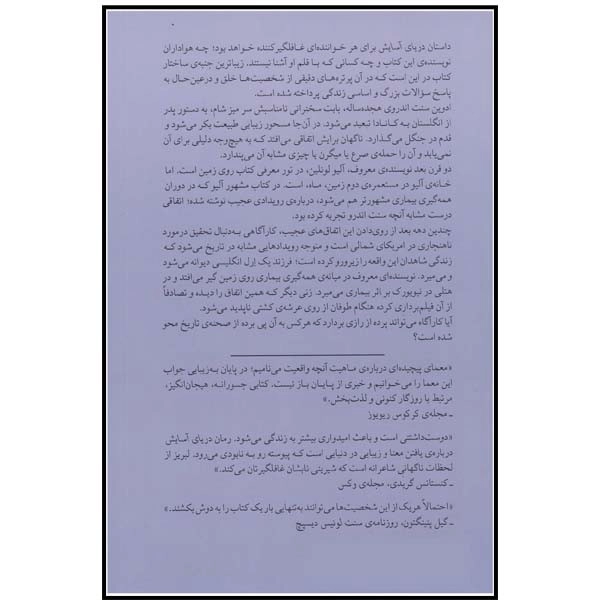 داستان دریای آسایش برای هر خواننده‌ای غافلگیرکننده خواهد بود؛ چه هواداران
نویسنده‌ی این کتاب و چه کسانی که با قلم او آشنا نیستند. زیباترین جنبه‌ی ساختار
کتاب در این است که در آن پرتره‌های دقیقی از شخصیت‌ها خلق و درعین‌حال به
پاسخ سؤالات بزرگ و اساسی زندگی پرداخته شده است.
ادوین سنت اندروی هجده‌ساله، بابت سخنرانی نامناسبش سر میز شام، به دستور پدر
از انگلستان به کانادا تبعید می‌شود. در آن‌جا مسحور زیبایی طبیعت بکر می‌شود و
قدم در جنگل می‌گذارد. ناگهان برایش اتفاقی می‌افتد که به هیچ‌وجه دلیلی برای آن
نمی‌یابد و آن را حمله‌ی صرع یا میگرن یا چیزی مشابه آن می‌پندارد.
دو قرن بعد نویسنده‌ی معروف، آلیو لولین، در تور معرفی کتاب روی زمین است. اما
خانه‌ی آلیو در مستعمره‌ی دوم زمین، ماه، است. در کتاب مشهور آلیو که در دوران
همه‌گیری بیماری مشهورتر هم می‌شود، درباره‌ی رویدادی عجیب نوشته شده؛ اتفاقی
درست مشابه آنچه سنت اندرو تجربه کرده بود.
چندین دهه بعد از روی‌دادن این اتفاق‌های عجیب، کارآگاهی به‌دنبال تحقیق درمورد
ناهنجاری در امریکای شمالی است و متوجه رویدادهایی مشابه در تاریخ می‌شود که
زندگی شاهدان این واقعه را زیرورو کرده است؛ فرزند یک اِرل انگلیسی دیوانه می‌شود
و می‌میرد. نویسنده‌ای معروف در میانه‌ی همه‌گیری بیماری روی زمین گیر می‌افتد و در
هتلی در نیویورک بر اثر بیماری می‌میرد. زنی دیگر که همین اتفاق را دیده و تصادفاً
از آن فیلم‌برداری کرده هنگام طوفان از روی عرشه‌ی کشتی ناپدید می‌شود.
آیا کارآگاه می‌تواند پرده از رازی بردارد که هرکس به آن پی برده از صحنه‌ی تاریخ محو
شده است؟
«معمای پیچیده‌ای درباره‌ی ماهیت آنچه واقعیت می‌نامیم؛ در پایان به‌زیبایی جواب
این معما را می‌خوانیم و خبری از پایان باز نیست. کتابی جسورانه، هیجان‌انگیز،
مرتبط با روزگار کنونی و لذت‌بخش.»
ـ مجله‌ی کرکوس ریویوز
«دوست‌داشتنی است و باعث امیدواری بیشتر به زندگی می‌شود. رمان دریای آسایش
درباره‌ی یافتن معنا و زیبایی در دنیایی است که پیوسته رو به نابودی می‌رود. لبریز از
لحظات ناگهانی شاعرانه است که شیرینی نابشان غافلگیرتان می‌کند.»
ـ کنستانس گریدی، مجله‌ی وکس
«احتمالاً هریک از این شخصیت‌ها می‌توانند به‌تنهایی بار یک کتاب را به دوش بکشند.»
ـ گیل پنینگتون، روزنامه‌ی سنت لوئیس دیسپچ